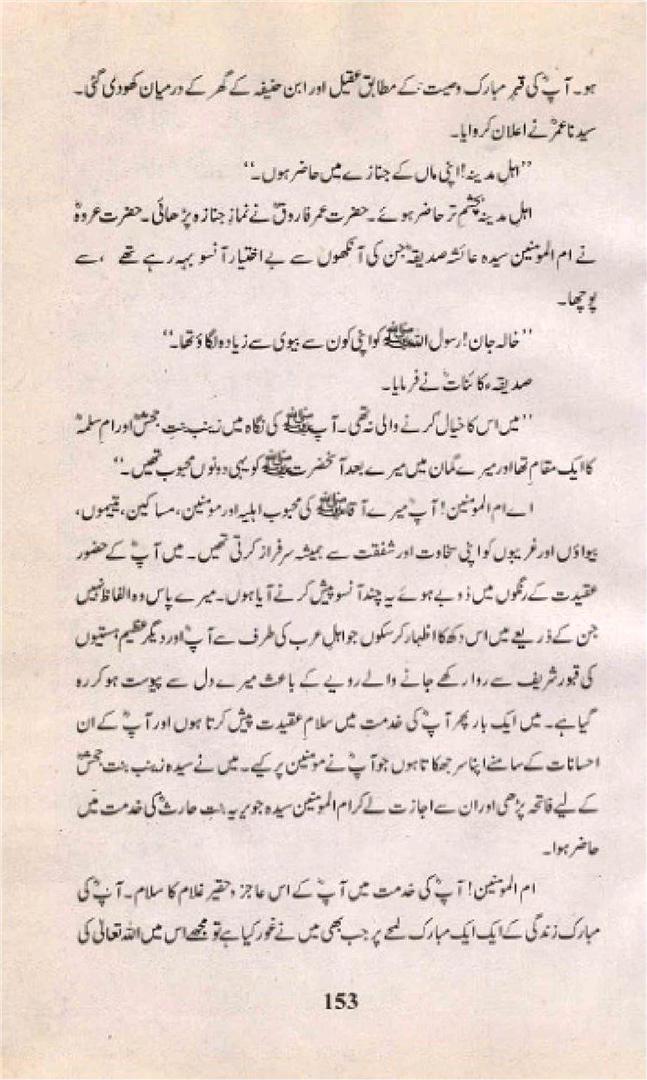 ہو۔ آپؓ کی قبر مبارک وصیت کے مطابق عقیل اور ابن حنیفہ کے گھر کے درمیان کھودی گئی۔
سیدنا عمرؓ نے اعلان کروایا۔
’’اہل مدینہ! اپنی ماں کے جنازے میں حاضر ہوں۔‘‘
اہل مدینہ بچشم تر حاضر ہوئے۔ حضرت عمر فاروقؓ نے نماز جنازہ پڑھائی۔ حضرت عروہؓ
نے ام المومنین سیدہ عائشہ صدیقہؓ جن کی آنکھوں سے بے اختیار آنسو بہہ رہے تھے ،سے
پوچھا۔
’’خالہ جان! رسول اللہ ﷺ کو اپنی کون سے بیوی سے زیادہ لگاؤ تھا۔‘‘
صدیقہء کائناتؓ نے فرمایا۔
’’میں اس کا خیال کرنے والی نہ تھی۔ آپ ﷺ کی نگاہ میں زینب بنتِ جحشؓ اور ام سلمہؓ
کا ایک مقام تھا اور میرے گمان میں میرے بعد آنحضرت ﷺ کو یہی دونوں محبوب تھیں۔‘‘
اے ام المومنین! آپؓ میرے آقا ﷺ کی محبوب اہلیہ اور مومنین، مساکین، یتیموں،
بیواؤں اور غریبوں کو اپنی سخاوت اور شفقت سے ہمیشہ سرفراز کرتی تھیں۔ میں آپؓ کے حضور
عقیدت کے رنگوں میں ڈوبے ہوئے یہ چند آنسو پیش کرنے آیا ہوں۔ میرے پاس وہ الفاظ نہیں
جن کے ذریعے میں اس دکھ کا اظہار کر سکوں جو اہل عرب کی طرف سے آپؓ اور دیگر عظیم ہستیوں
کی قبور شریف سے روا رکھے جانے والے رویے کے باعث میرے دل سے پیوست ہو کر رہ
گیا ہے۔ میں ایک بار پھر آپؓ کی خدمت میں سلام عقیدت پیش کرتا ہوں اور آپؓ کے ان
احسانات کے سامنے اپنا سر جھکاتا ہوں جو آپؓ نے مومنین پر کیے۔ میں نے سیدہ زینب بنت جحشؓ
کے لیے فاتحہ پڑھی اور ان سے اجازت لے کر ام المومنین سیدہ جویریہ بنت حارثؓ کی خدمت میں
حاضر ہوا۔
ام المومنین! آپؓ کی خدمت میں آپؓ کے اس عاجز و حقیر غلام کا سلام۔ آپؓ کی
مبارک زندگی کے ایک ایک مبارک لمحے پر جب بھی میں نے غور کیا ہے تو مجھے اس میں اللہ تعالیٰ کی
153